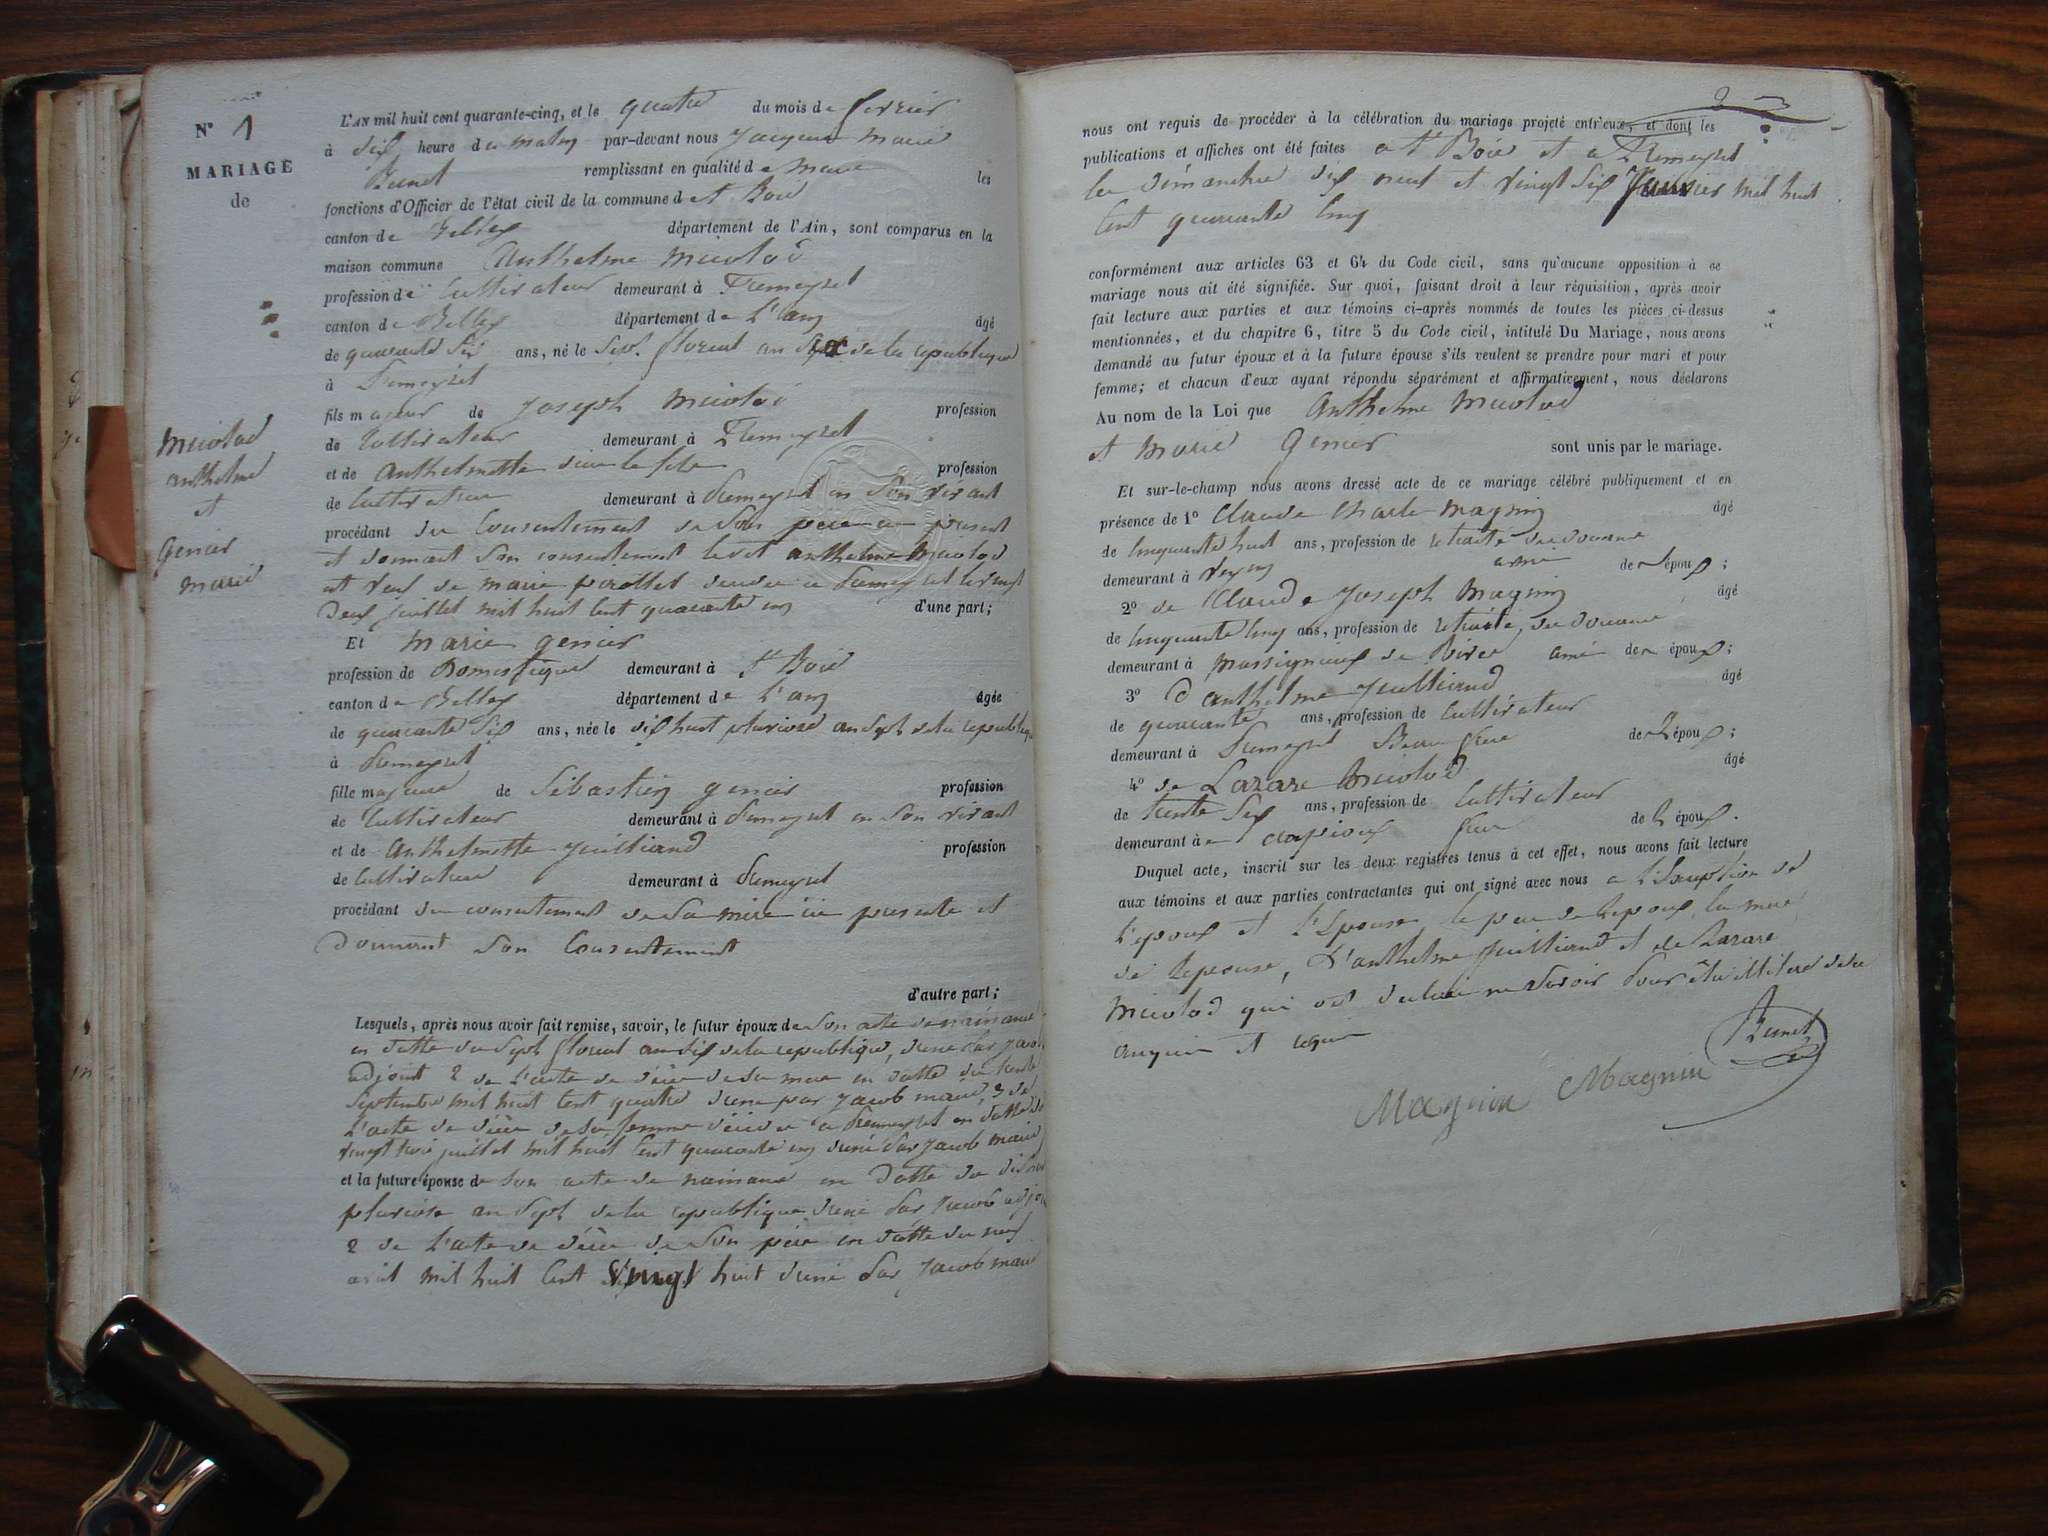 N° 1
MARIAGE
de
Miolod
anthelme
et
Genier
marie
L'AN mil huit cent quarante-cinq, et le quatre du mois de fevrier
à dix heure du matin par-devant nous Jacques Marie
remplissant en qualité de maire les
fonctions d'Officier de l'état civil de la commune de St Bois
canton de Belley département de l'Ain, sont comparus en la
maison commune Anthelme Miolod
profession de Cultivateur demeurant à Premeyzel
canton de Belley département de L'ain âgé
de quarante six ans, né le sept floreal an six de la republique
à Premeyzel
fils majeur de Joseph Miolod profession
de Cultivateur demeurant à Premeyzel
et de Anthelmette profession
de Cultivateur demeurant à Premeyzel en son vivant
procédant du consentement de son pere ici present
et donnant son consentement ledit anthelme Miolod
est veuf de marie décédée a Premeyzel le vingt
deux juillet mil huit cent quarante un d'une part;
Et Marie Genier
profession de Domestique demeurant à St Bois
canton de Belley département de L'ain âgée
de quarante six ans, née le dix huit pluviose an sept de la republique
à Premeyzel
fille majeure de Sébastien Genier profession
de Cultivateur demeurant à Premeyzel en son vivant
et de Anthelmette Juilliand profession
de Cultivateur demeurant à Premeyzel
procédant du consentement de sa mère ici presente et
donnant son Consentement
d'autre part;
Lesquels, après nous avoir fait remise, savoir, le futur époux de son acte de naissance
en datte du sept floreal an six de la republique, signé par Jacob
adjoint 2 de l'acte de décès de sa mere en datte du trente
septembre mil huit cent quatre signé par Jacob maire, 3 de
l'acte de décès de sa femme décédée a Premeyzel en datte du
vingt trois juillet mil huit cent quarante un signé par Jacob maire
et la future épouse de son acte de naissance en datte du dix huit
pluviose an sept de la republique signé par Jacob adjoint
2 de l'acte de décès de son père en datte du neuf
avril mil huit cent vingt huit signé par Jacob maire
nous ont requis de procéder à la célébration du mariage projeté entr'eux, et dont les
publications et affiches ont été faites a St Bois et a Premeyzel
les dimanches dix neuf et vingt six Janvier mil huit
cent quarante cinq
conformément aux articles 63 et 64 du Code civil, sans qu'aucune opposition à ce
mariage nous ait été signifiée. Sur quoi, faisant droit à leur réquisition, après avoir
fait lecture aux parties et aux témoins ci-après nommés de toutes les pièces ci-dessus
mentionnées, et du chapitre 6, titre 5 du Code civil, intitulé Du Mariage, nous avons
demandé au futur époux et à la future épouse s'ils veulent se prendre pour mari et pour
femme; et chacun d'eux ayant répondu séparément et affirmativement, nous déclarons
Au nom de la Loi que Anthelme Miolod
et Marie Genier sont unis par le mariage.
Et sur-le-champ nous avons dressé acte de ce mariage célébré publiquement et en
présence de 1° Claude Charle Magnin âgé
de cinquante huit ans, profession de retraité de douane
demeurant à ami de l'époux;
2° de Claude Joseph Magnin âgé
de cinquante cinq ans, profession de retraité, de douane
demeurant à Massignieux de Rives ami de l'époux;
3° d'anthelme Juilliand âgé
de quarante ans, profession de Cultivateur
demeurant à Premeyzel Beau frere de l'époux;
4° de Lazare Miolod âgé
de trente six ans, profession de Cultivateur
demeurant à frere de l'époux.
Duquel acte, inscrit sur les deux registres tenus à cet effet, nous avons fait lecture
aux témoins et aux parties contractantes qui ont signé avec nous a l'exception de
l'époux et l'épouse le pere de l'epoux, la mere
de l'epouse, d'anthelme Juilliand et de Lazare
Miolod qui ont declaré ne savoir pour être illitéré de ce
enquis et requis
Magnin Magnin